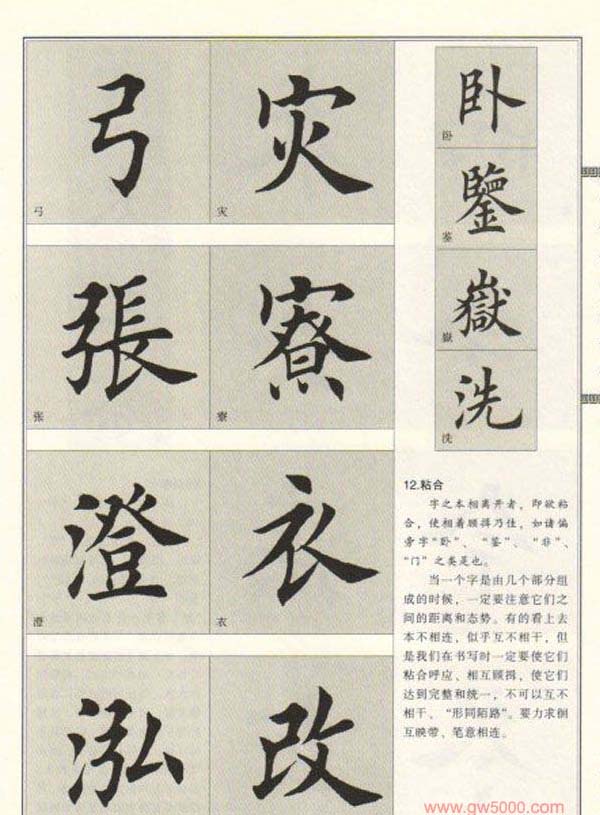 弓
灾
弓
灾
張
寮
张
寮
澄
衣
澄
衣
泓
改
卧
卧
鑒
鉴
嶽
嶽
洗
洗
12.粘合
字之本相离开者，即欲粘
合，使相着顾揖乃佳，如诸偏
旁字“卧”、“鉴”、“非”、
“门”之类是也。
当一个字是由几个部分组
成的时候，一定要注意它们之
间的距离和态势。有的看上去
本不相连，似乎互不相干，但
是我们在书写时一定要使它们
粘合呼应、相互顾揖，使它们
达到完整和统一，不可以互不
相干、“形同陌路”。要力求倒
互映带，笔意相连。
www.gw5000.com